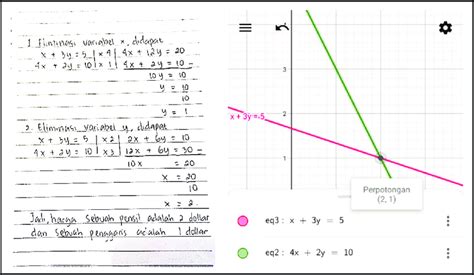 1. Eliminasi variabel x, didapat
x + 3y = 5 | x 4 | 4x + 12y = 20
4x + 2y = 10 | x 1 | 4x + 2y = 10 -
10 y = 10
y = 10
10
y = 1
2. Eliminasi variabel y, didapat
x + 3y = 5 | x 2 | 2x + 6y = 10
4x + 2y = 10 | x 3 | 12x + 6y = 30 -
10x = 20
x = 20
10
x = 2.
Jadi, harga sebuah pensil adalah 2 dollar
dan sebuah penggaris adalah 1 dollar
3
2
x + 3y = 5
1
Perpotongan
(2, 1)
eq3 : x + 3y = 5
eq2 : 4x + 2y = 10